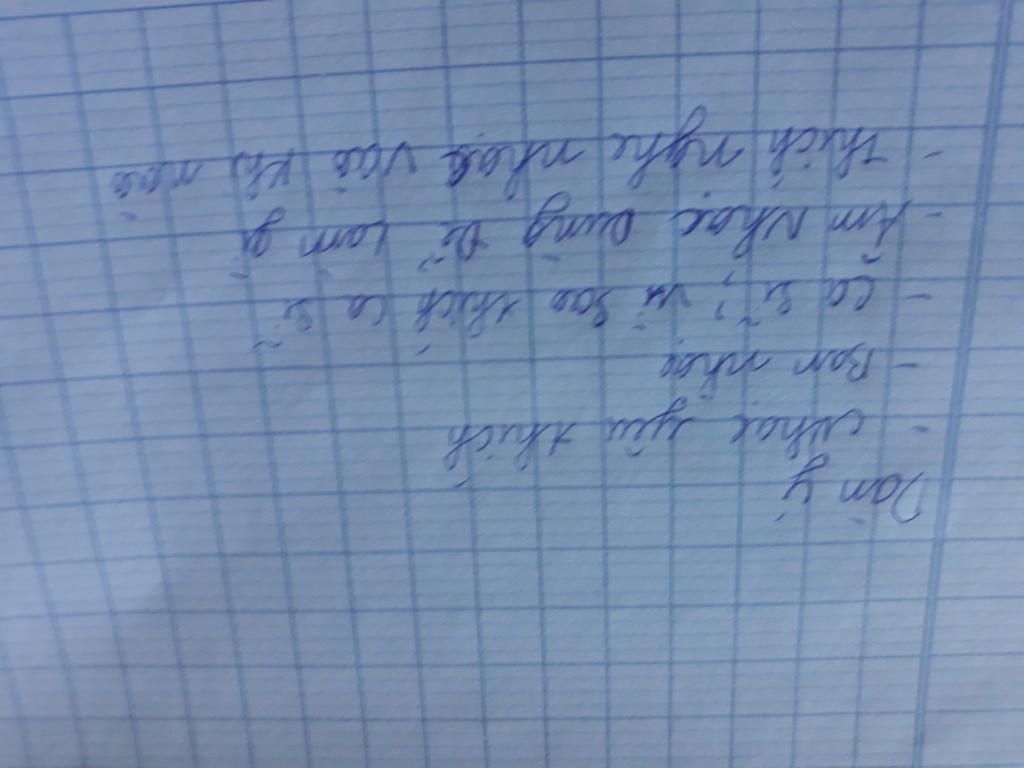 Dàn ý
- Nhạc yêu thích
- Bản nhạc
- Ca sĩ, vì sao thích ca sĩ
- Âm nhạc dùng để làm gì
- Thích nghe nhạc vào khi nào